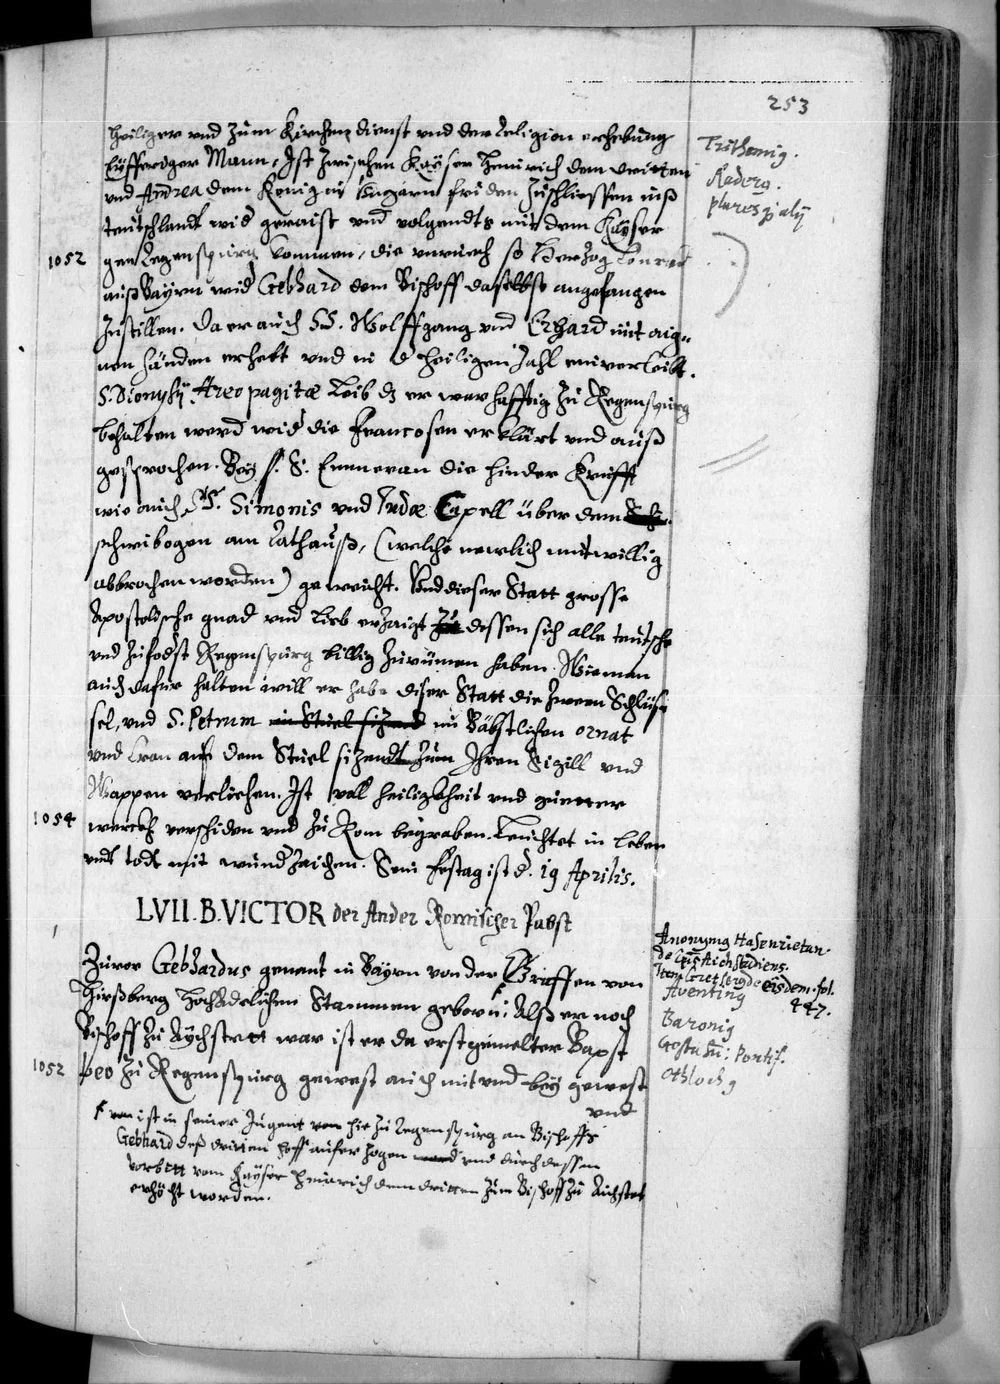 253
heiliger und zum Kirchen dienst und der Religion erhebung
Eyfferiger Mann, Ist zwischen Kayser Heinrich dem dritten
und Andrea dem Konig in Ungarn friden zuschliessen auß
teutschlandt wid geraist und volgendts mit dem Kayser
1052
gen Regenspurg kommen, die unrueh so Herzog Conrad
auß Bayrn wid Gebhard dem Bischoff daselbst angefangen
zustillen. Da er auch SS. Wolffgang und Erhard mit aig-
nen händen erhebt und in d heiligen Zahl einverleibt.
S. Dionysij Areopagitæ Leib dz er warhafftig zu Regenspurg
behalten werd wid die Francosen erklärt und auß
gesprochen. Bey S. Emmeran die hinder Krufft
wie auch SS. Simonis und Judæ Capell über dem
schwibogen am Rathauß, (welche newlich mutwillig
abbrochen worden) geweicht. Und dieser Statt grosse
Apostolische gnad und lieb erzaigt dessen sich alle teutsche
und zufodst Regenspurg billig zurümen haben. Wie man
auch dafür halten will er habe diser Statt die zween Schlüs-
sel, und S. Petrum in Stuel sizend im Bäbstlichen ornat
und Cron auf dem Stuel sizendt zum Ihren Sigill und
Wappen verliehen. Ist voll heiligkheit und guetter
1054
werckh verschiden und zu Rom begraben. Leuchtet in leben
und todt mit wundzaichen. Sein Festag ist d. 19 Aprilis.
LVII. B. VICTOR der Ander Romischer Pabst
Zuvor Gebhardus genant in Bayrn von der Graffen von
Hirßberg Hochadelichen Stammen geborn: Alß er noch
Bischoff zu Aychstett war ist er da erstgemelter Bapst
1052
Leo zu Regenspurg gewest auch mit und bey gewest
und
van ist in seiner Jugent von hie zu Regenspurg an Bischoffs
Gebhard deß dritten hoff auferzogen ward und durch dessen
vorbitt vom Kayser Heinrich dem dritten zum Bischoff zu Aichstet
erhöcht worden.
Trithemig.
Raderg.
plures alij
Anonymg Hasenrietan.
de Epis Aichstediens.
Item Gretserg de eisdem fol.
447.
Aventing
Baronig
Gesta Pontif.
Othlochg